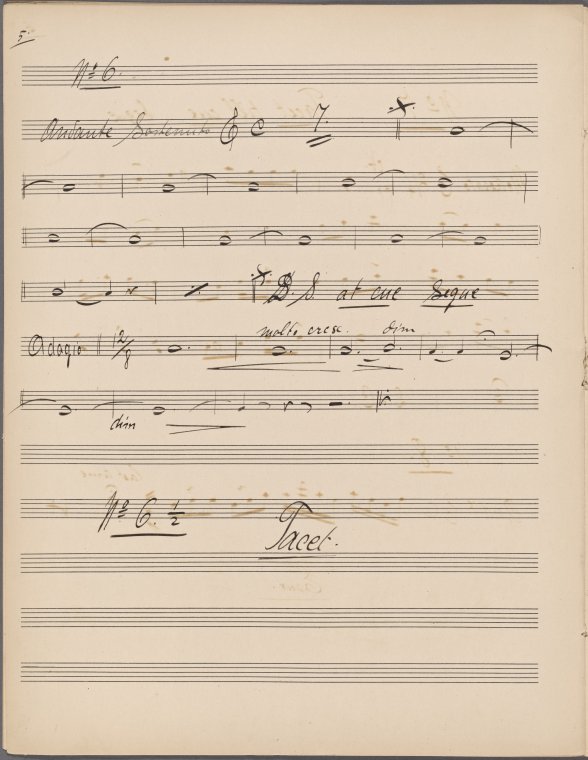 5
Nº 6.
Andante Sostenuto C 7.
D. S. at cue Segue
molto cresc. dim
Adagio 12/8
dim
Nº 6 ½
Tacet.